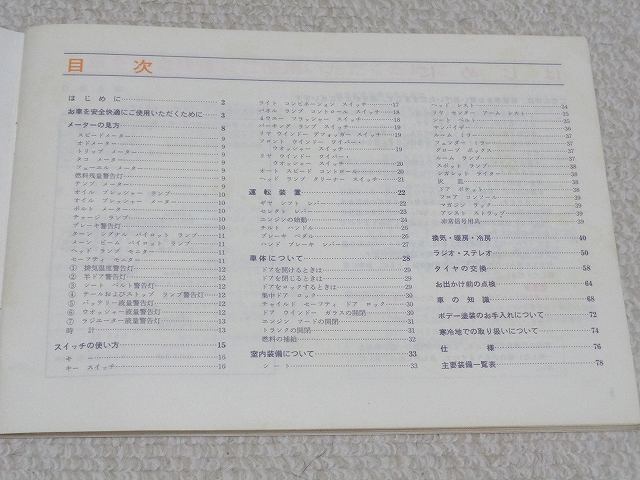 目 次
はじめに 2
お車を安全快適にご使用いただくために 3
メーターの見方 8
スピードメーター 9
オドメーター 9
トリップ メーター 9
タコ メーター 9
フューエル メーター 9
燃料残量警告灯 9
テンプ メーター 9
オイル プレッシャー ランプ 10
オイル プレッシャー メーター 10
ボルト メーター 10
チャージ ランプ 10
ブレーキ警告灯 10
ターン シグナル パイロット ランプ 11
メーン ビーム パイロット ランプ 11
ヘッド ランプ モニター 11
セーフティ モニター 11
① 排気温度警告灯 12
② 半ドア警告灯 12
③ シート ベルト警告灯 12
④ テールおよびストップ ランプ警告灯 12
⑤ バッテリー液量警告灯 12
⑥ ウオッシャー液量警告灯 13
⑦ ラジエーター液量警告灯 13
時 計 13
スイッチの使い方 15
キー 16
キー スイッチ 16
ライト コンビネーション スイッチ 17
パネル ランプ コントロール スイッチ 18
4ウエー フラッシャー スイッチ 18
パーキング ランプ スイッチ 19
リヤ ウインドー デフォッガー スイッチ 19
フロント ウインドー ワイパー・
ウオッシャー スイッチ 19
リヤ ウインドー ワイパー・
ウオッシャー スイッチ 20
オート スピード コントロール 20
ヘッド ランプ クリーナー スイッチ 21
運 転 装 置 22
ギヤ シフト レバー 22
セレクト レバー 23
エンジンの始動 24
チルト ハンドル 26
ブレーキ ペダル 26
ハンド ブレーキ レバー 27
車体について 28
ドアを開けるときは 29
ドアを閉じるときは 29
ドアをロックするときは 29
集中ドア ロック 30
チャイルド セーフティ ドア ロック 30
ドア ウインドー ガラスの開閉 30
エンジン フードの開閉 31
トランクの開閉 31
燃料の補給 32
室内装備について 33
シート 33
ヘッド レスト 34
リヤ センター アーム レスト 35
シート ベルト 35
サンバイザー 36
ルーム ミラー 37
フェンダー ミラー 37
グローブ ボックス 37
ルーム ランプ 37
スポット ランプ 38
シガレット ライター 38
灰 皿 38
ドア ポケット 38
フロア コンソール 39
マガジン ラック 39
アシスト ストラップ 39
非常信号用具 39
換気・暖房・冷房 40
ラジオ・ステレオ 50
タイヤの交換 58
お出かけ前の点検 64
車 の 知 識 68
ボデー塗装のお手入れについて 72
寒冷地での取り扱いについて 74
仕 様 76
主要装備一覧表 78